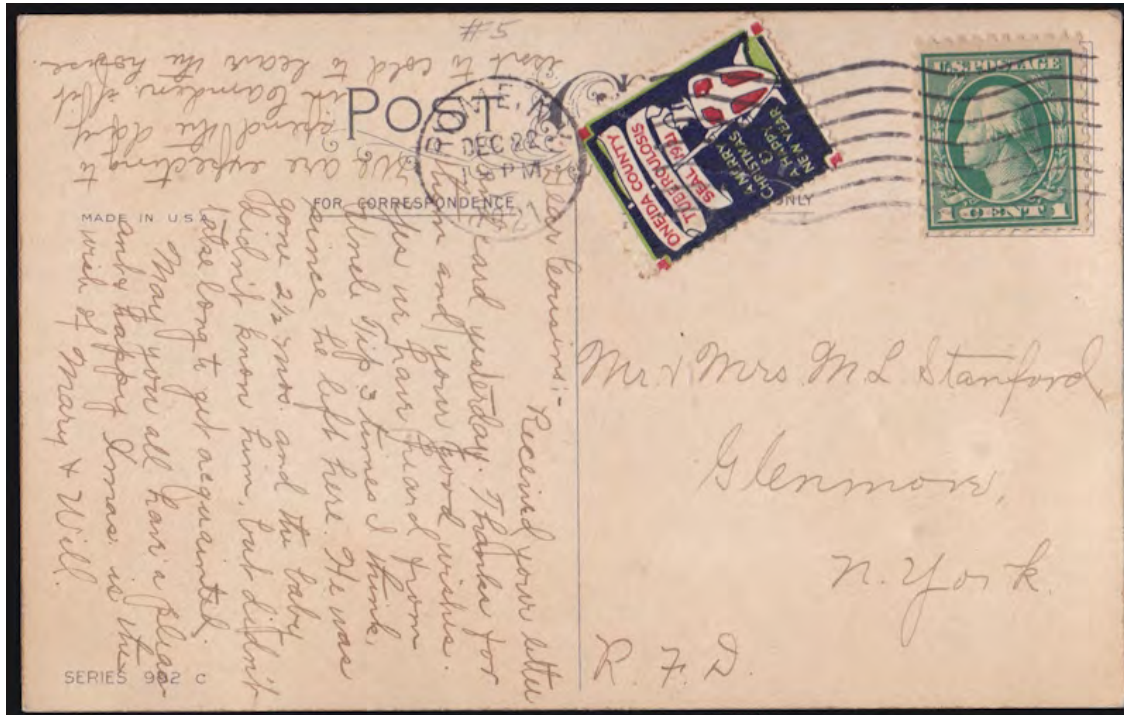 #5
POST
ROME, N.Y.
DEC 22
PM
FOR CORRESPONDENCE
MADE IN U.S.A.
ONLY
ONEIDA COUNTY
TUBERCULOSIS
SEAL 1921
A MERRY
CHRISTMAS
&
A HAPPY
NEW YEAR
U.S. POSTAGE
1 CENT 1
Dear Cousins:-
Received your letter
and card yesterday. Thanks for
them and your good wishes.
Yes we have heard from
Uncle Tip 3 times I think,
since he left here. He was
gone 2½ mos. and the baby
didn't know him, but didn't
take long to get acquainted.
May you all have a pleas-
ant & happy Xmas. is the
wish of Mary & Will.
We are expecting to
spend the day
in Camden if it
isn't to cold to leave the house.
Mr & Mrs M L Stanford,
Glenmore,
N. York.
R. F. D.
SERIES 902 C